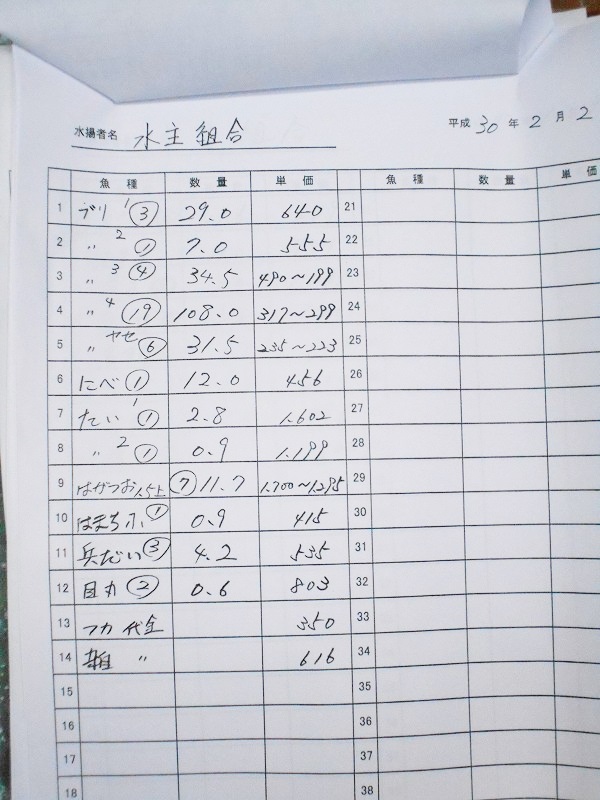 水揚者名 水主組合
平成 30 年 2 月 2
魚種 数量 単価 魚種 数量 単価
1 ブリ 1 ③ 29.0 640 21
2 〃 2 ① 7.0 555 22
3 〃 3 ④ 34.5 490～199 23
4 〃 4 ⑲ 108.0 317～299 24
5 〃 ヤセ ⑥ 31.5 235～223 25
6 にべ ① 12.0 456 26
7 たい 1 ① 2.8 1.602 27
8 〃 2 ① 0.9 1.199 28
9 はがつお 1.5上 ⑦ 11.7 1.700～1.295 29
10 はまちふ ① 0.9 415 30
11 兵だい ③ 4.2 535 31
12 目丸 ② 0.6 803 32
13 フカ 代金 350 33
14 雑 〃 616 34
15 35
16 36
17 37
18 38